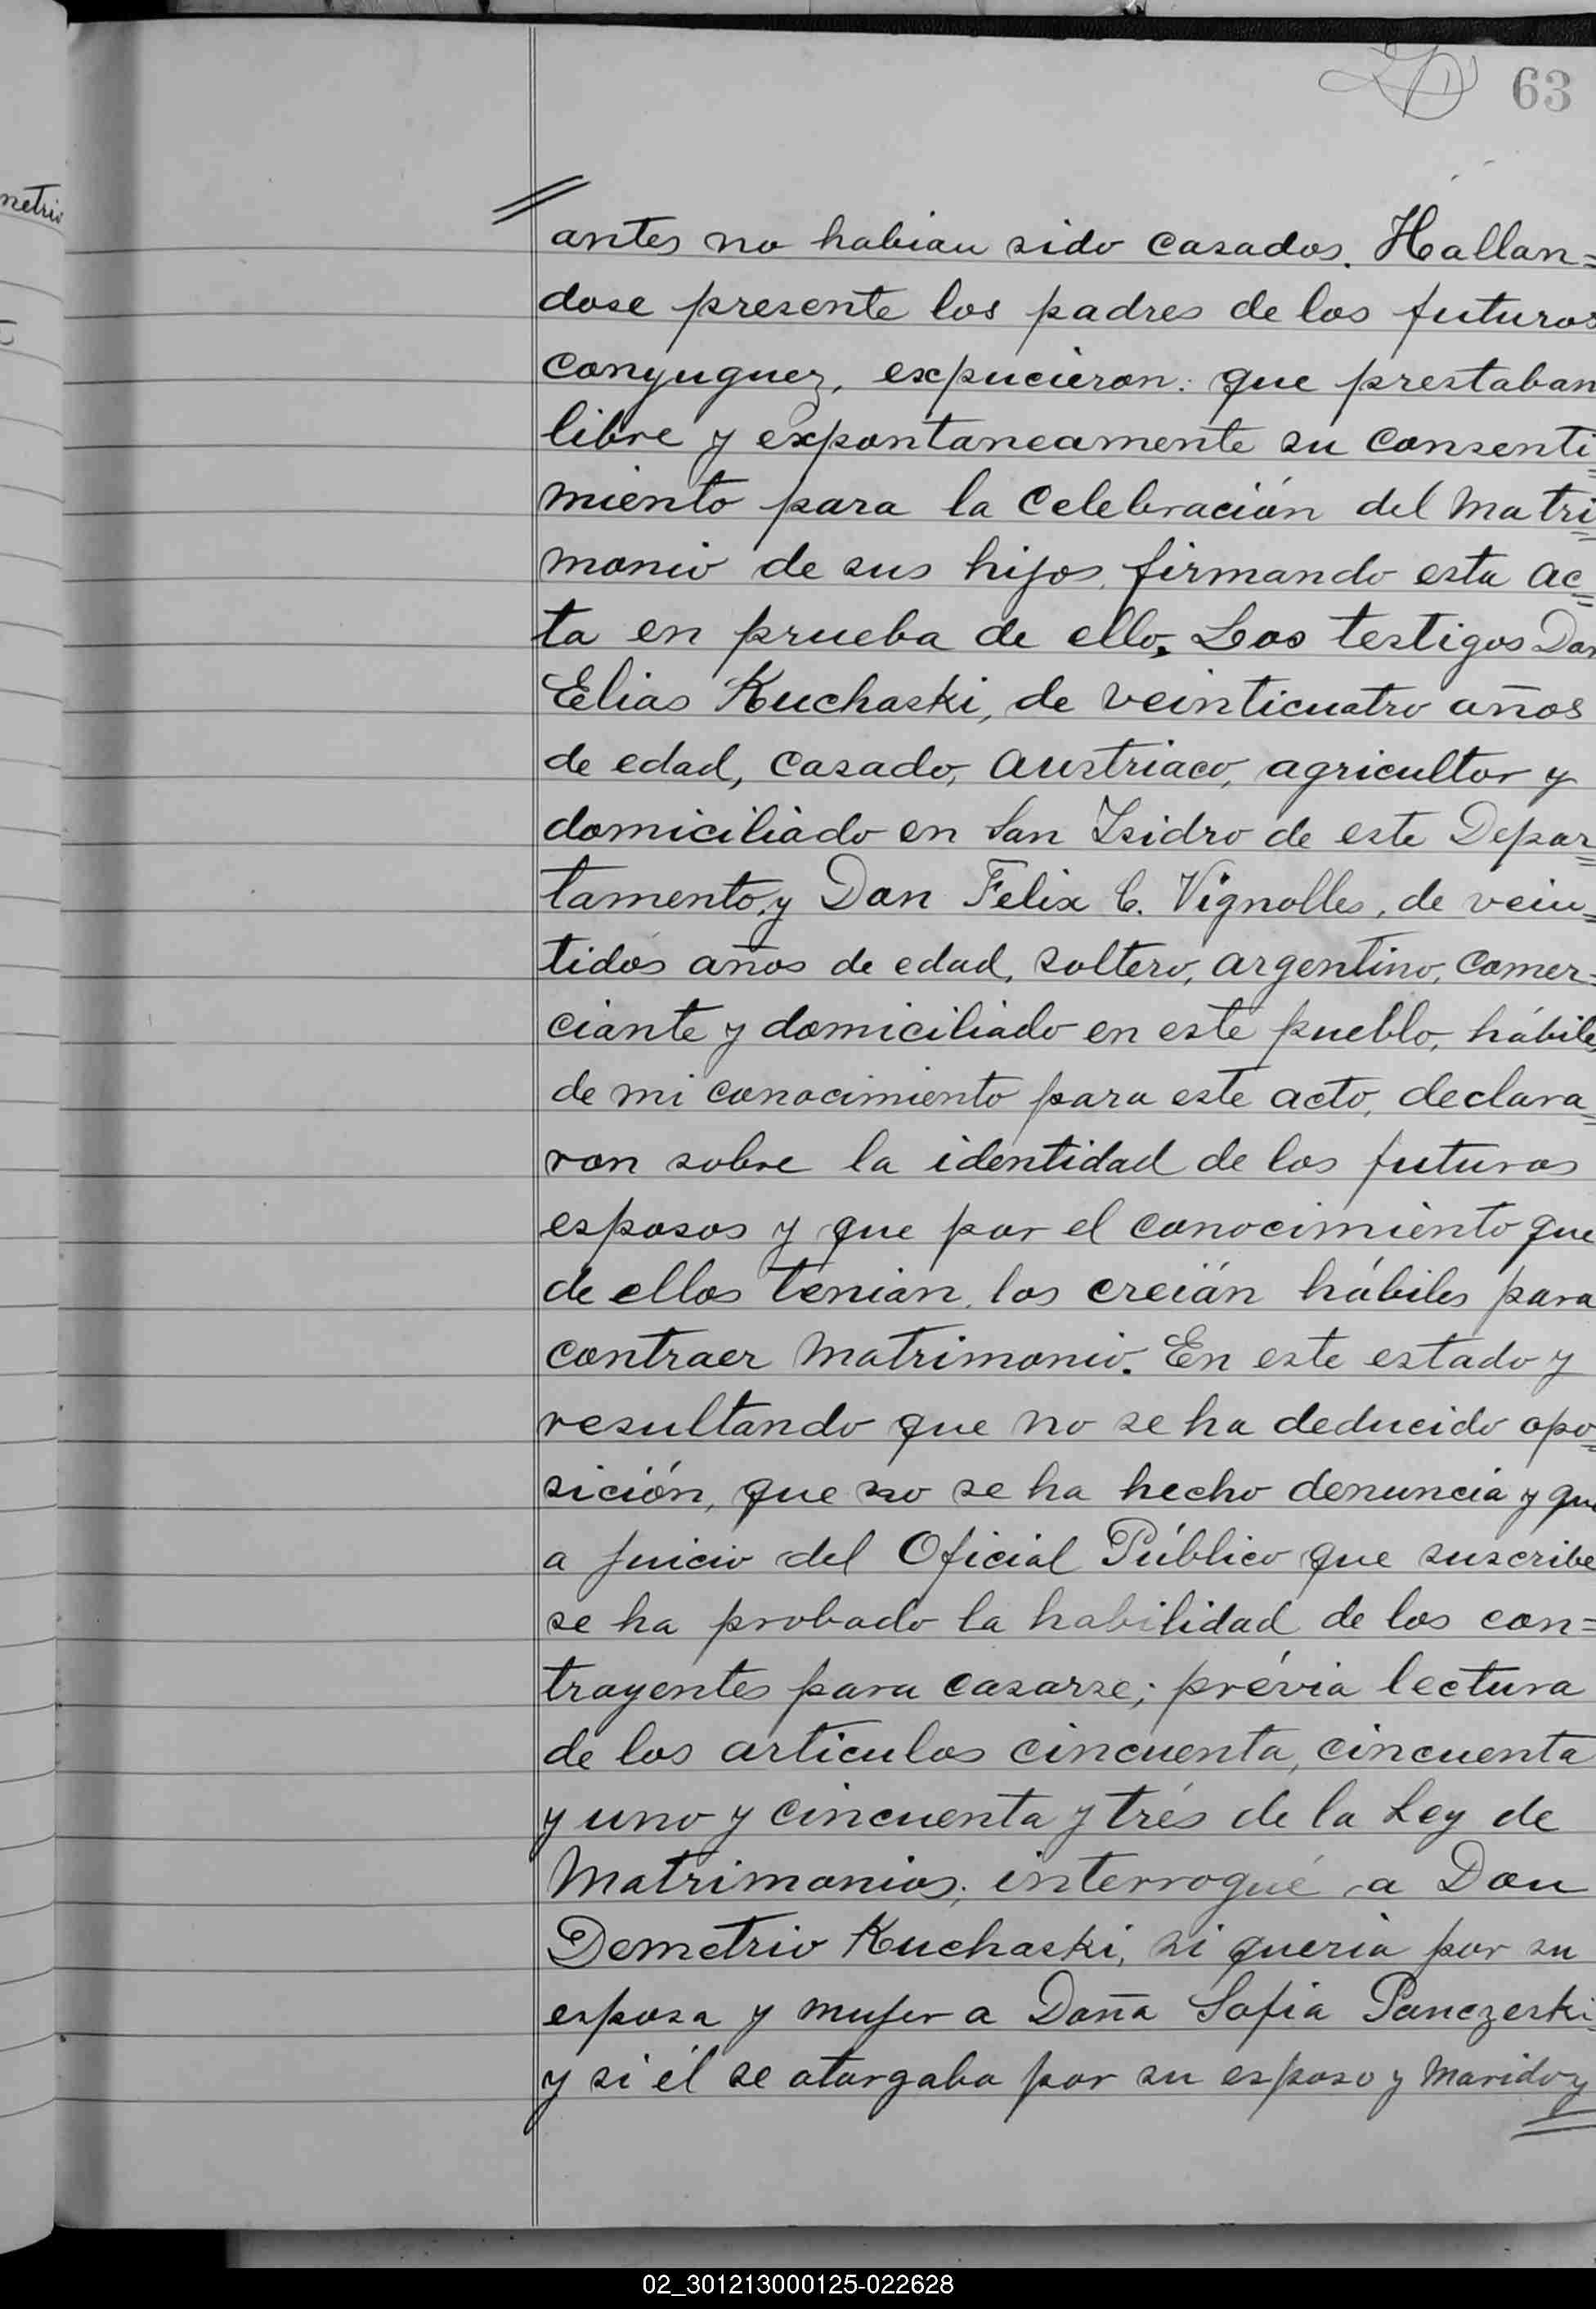 63
netrio
antes no habian sido casados. Hallan=
dose presente los padres de los futuros
conyuguez, expucieron: que prestaban
libre y expontaneamente su consenti=
miento para la celebración del matri=
monio de sus hijos, firmando esta ac=
ta en prueba de ello. Los testigos Don
Elias Kuchaski, de veinticuatro años
de edad, casado, austriaco, agricultor y
domiciliado en San Isidro de este Depar=
tamento, y Don Felix C. Vignolles, de vein=
tidós años de edad, soltero, argentino, comer=
ciante y domiciliado en este pueblo, hábile
de mi conocimiento para este acto, declara=
ron sobre la identidad de los futuros
esposos y que por el conocimiento que
de ellos tenian, los creián hábiles para
contraer matrimonio. En este estado y
resultando que no se ha deducido opo=
sición, que no se ha hecho denuncia y que
a juicio del Oficial Público que suscribe
se ha probado la habilidad de los con=
trayentes para casarse; prévia lectura
de los articulos cincuenta, cincuenta
y uno y cincuenta y trés de la Ley de
Matrimonios; interrogué a Don
Demetrio Kuchaski, si queria por su
esposa y mujer a Doña Sofia Panczeski
y si él se otorgaba por su esposo y marido y
02_301213000125-022628